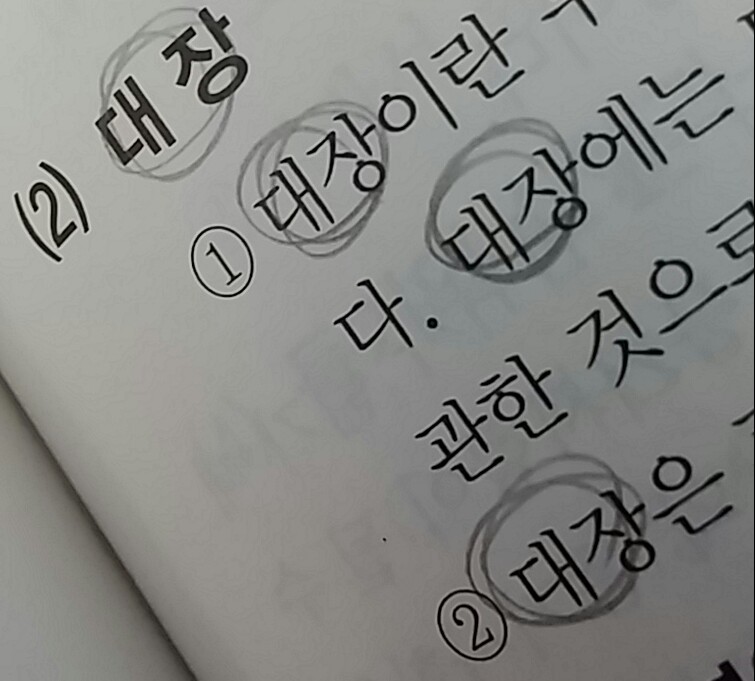 (2) 대장
① 대장이란
다. 대장에는
관한 것으로
② 대장은